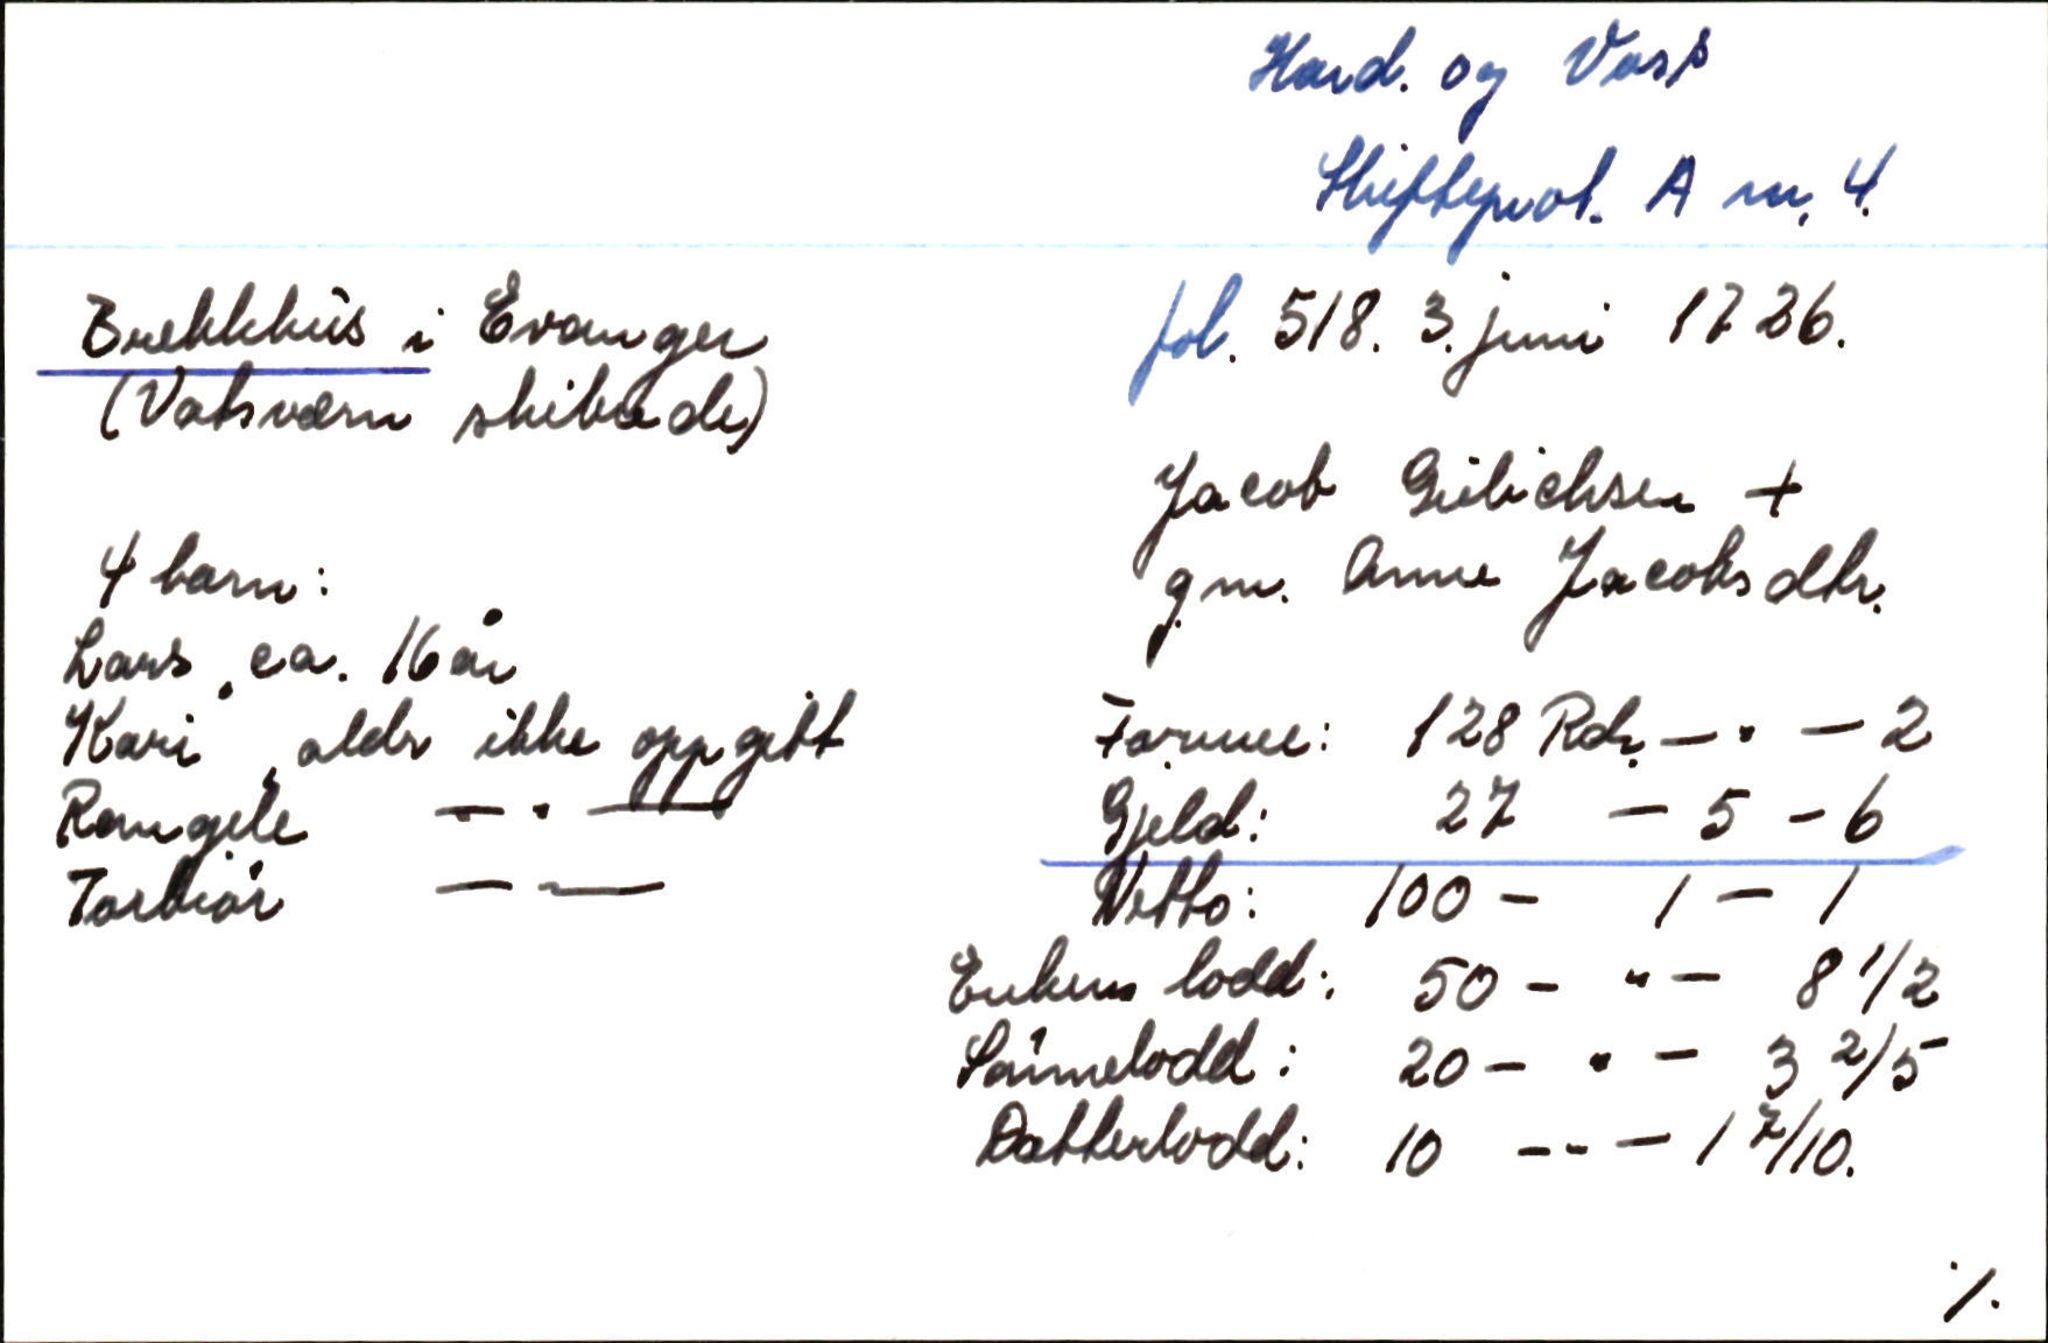 Hard. og Voss
Skifteprot. A nr. 4.
Brekkhus i Evanger
(Vatsværn skibrede)
fol. 518. 3. juni 1726.
Jacob Gulichsen +
g.m. Anne Jacobsdtr.
4 barn:
Lars, ca. 16 år
Kari, aldr ikke oppgitt
Rangele — " —
Torbiør — " —
Formue: 128 Rdr. — " — 2
Gjeld: 27 — 5 — 6
Netto: 100 — 1 — 1
Enkens lodd: 50 — " — 8 1/2
Sønnelodd: 20 — " — 3 2/5
Datterlodd: 10 — " — 1 7/10.
./.